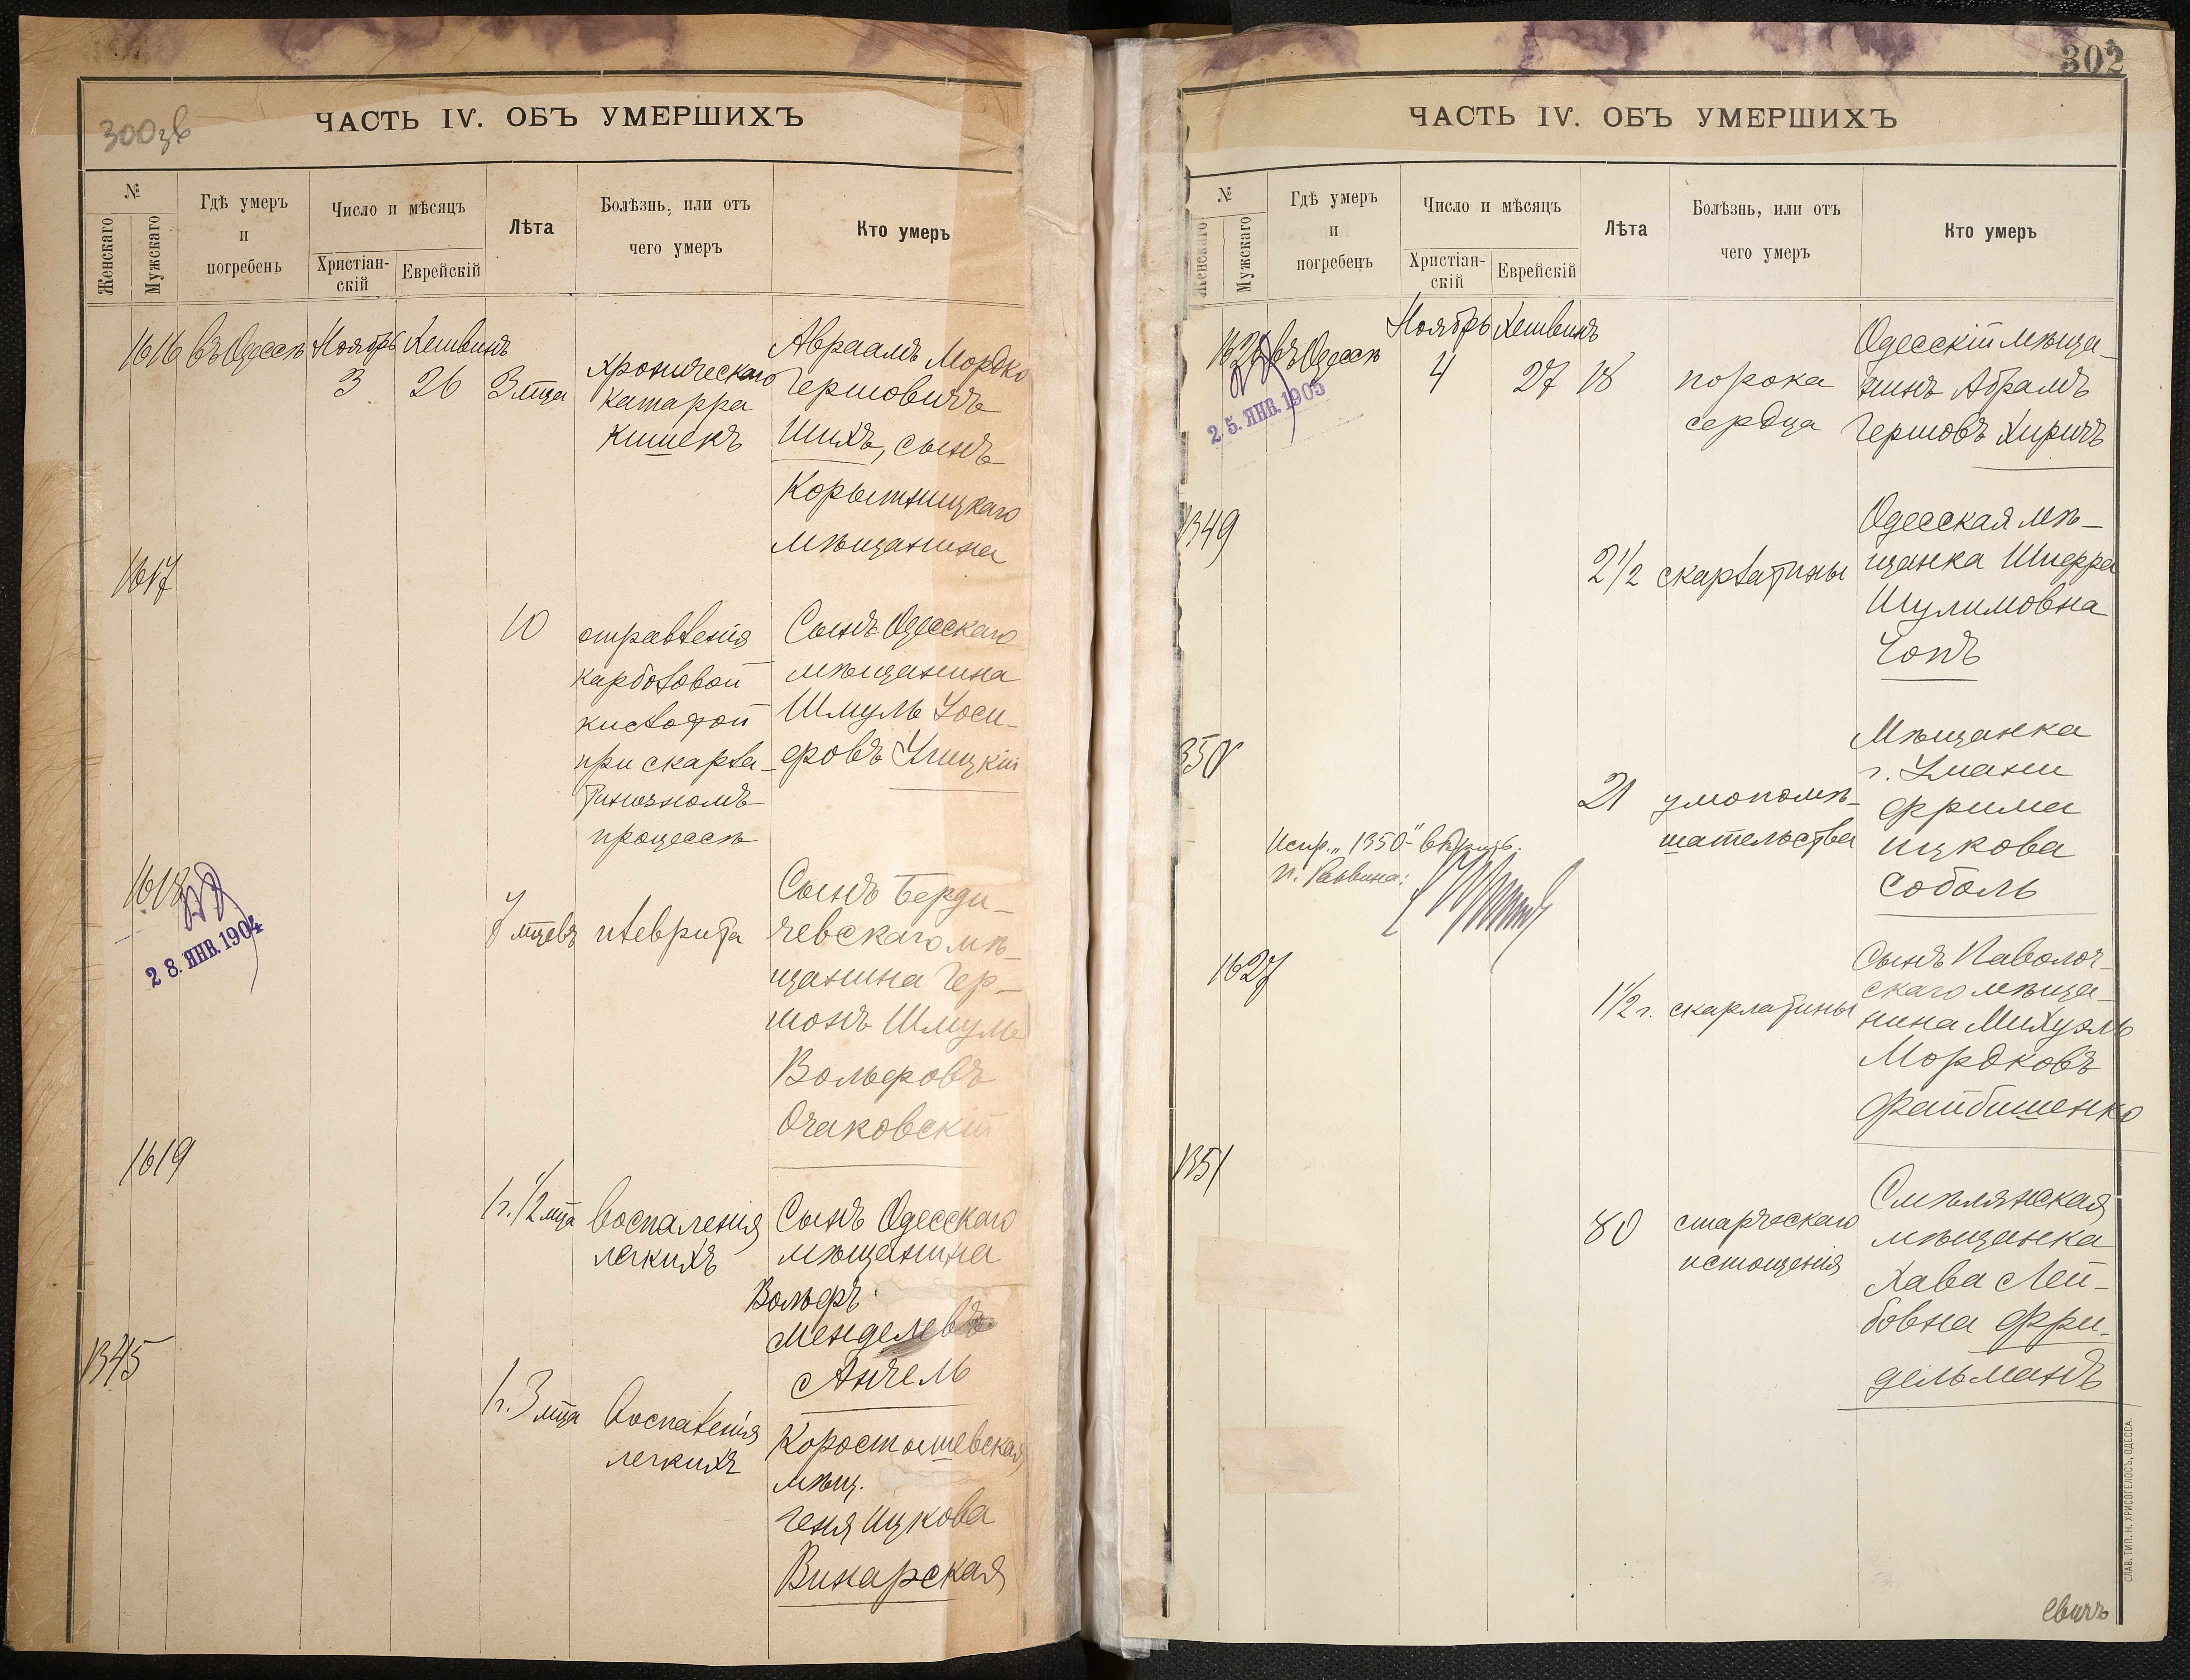 300зв
ЧАСТЬ IV. ОБЪ УМЕРШИХЪ
№
Женскаго
Мужскаго
Гдѣ умеръ
и
погребенъ
Число и мѣсяцъ
Христіан-
скій
Еврейскій
Лѣта
Болѣзнь, или отъ
чего умеръ
Кто умеръ
1616 въ Одессѣ Ноябрь Хешвинъ
3 26 3 мца
хроническаго
катарра
кишекъ
Авраамъ Мордко
Гершовичъ
Шихъ, сынъ
Корытницкаго
мѣщанина
1617
10
отравленія
карболовой
кислотой
при скарла-
тинозномъ
процессѣ
Сынъ Одесскаго
мѣщанина
Шмуль Іоси-
фовъ Улицкій
1618
28. ЯНВ. 1904
7 мцевъ
плеврита
Сынъ Берди-
чевскаго мѣ-
щанина Гер-
шонъ Шмуль
Вольфовъ
Очаковскій
1619
1 г. 1/2 мца
воспаленія
легкихъ
Сынъ Одесскаго
мѣщанина
Вольфъ
Менделевъ
Анчель
1345
1 г. 3 мца
воспаленія
легкихъ
Коростышевская
мѣщ.
Геня Ицкова
Винарская
302
ЧАСТЬ IV. ОБЪ УМЕРШИХЪ
№
Женскаго
Мужскаго
Гдѣ умеръ
и
погребенъ
Число и мѣсяцъ
Христіан-
скій
Еврейскій
Лѣта
Болѣзнь, или отъ
чего умеръ
Кто умеръ
1626 въ Одессѣ Ноябрь Хешвинъ
4 27 18
25. ЯНВ. 1905
порока
сердца
Одесскій мѣща-
нинъ Абрамъ
Гершовъ Хиричъ
1349
2 1/2
скарлатины
Одесская мѣ-
щанка Шифра
Шулимовна
Чопъ
1350
21
умопомѣ-
шательства
Мѣщанка
г. Умани
Фрима
Ицкова
Соболь
Испр. „1350"
п. Раввина:
1627
1 1/2 г.
скарлатины
Сынъ Паволоч-
скаго мѣща-
нина Михуэль
Мордковъ
Файбишенко
1351
80
старческаго
истощенія
Смѣлянская
мѣщанка
Хава Лей-
бовна Фри-
дельманъ
СЛАВ. ТИП. Н. ХРИСОГЕЛОСЪ, ОДЕССА
евичъ